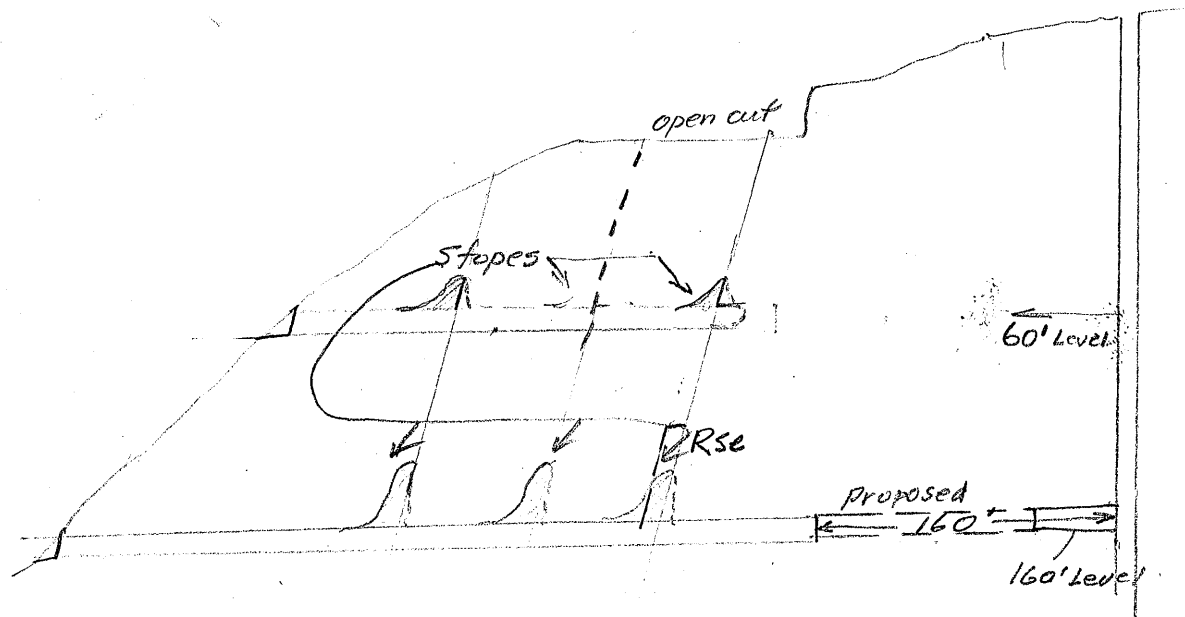 open cut
Stopes
60' Level
Rse
Proposed
160'
160' Level